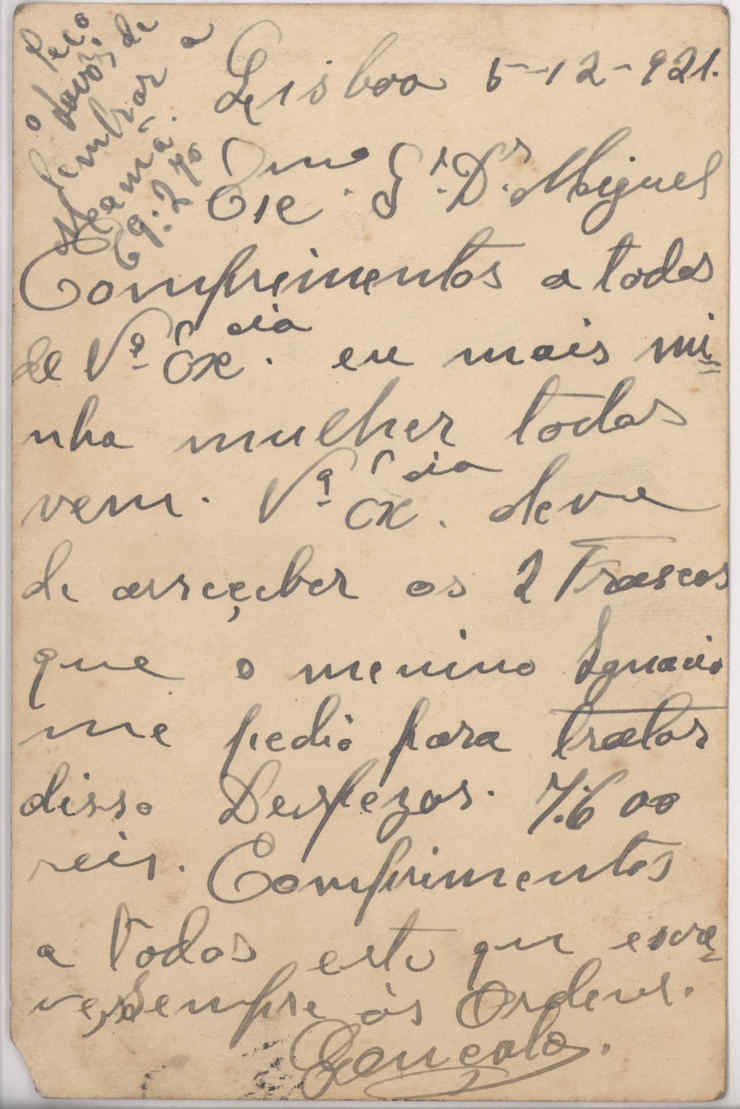 Peço
o favor de
lembrar a
Mamã
69:270
Lisboa 5-12-921.
Exmo. Sr. Dr. Miguel
Comprimentos a todos
de Vª Excia. eu mais mi=
nha mulher todos
vem. Vª Excia. deve
de arreçeber os 2 Frascos
que o menino Ignacio
me pedio para tratar
disso Despezas. 7.600
reis. Comprimentos
a todos este que escre=
ve, Sempre ás Ordens.
Gonçalo.